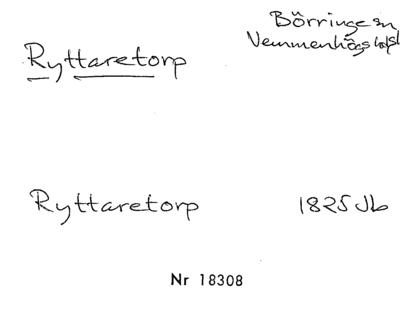 Börringe sn
Vemmenhögs
Ryttaretorp
Ryttaretorp 1825 Jb
Nr 18308